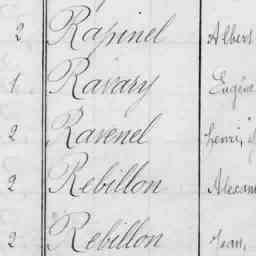 2 Rapinel Albert
1 Ravary Eugène
2 Ravenel Henri,
2 Rebillon Alexan
2 Rebillon Jean,